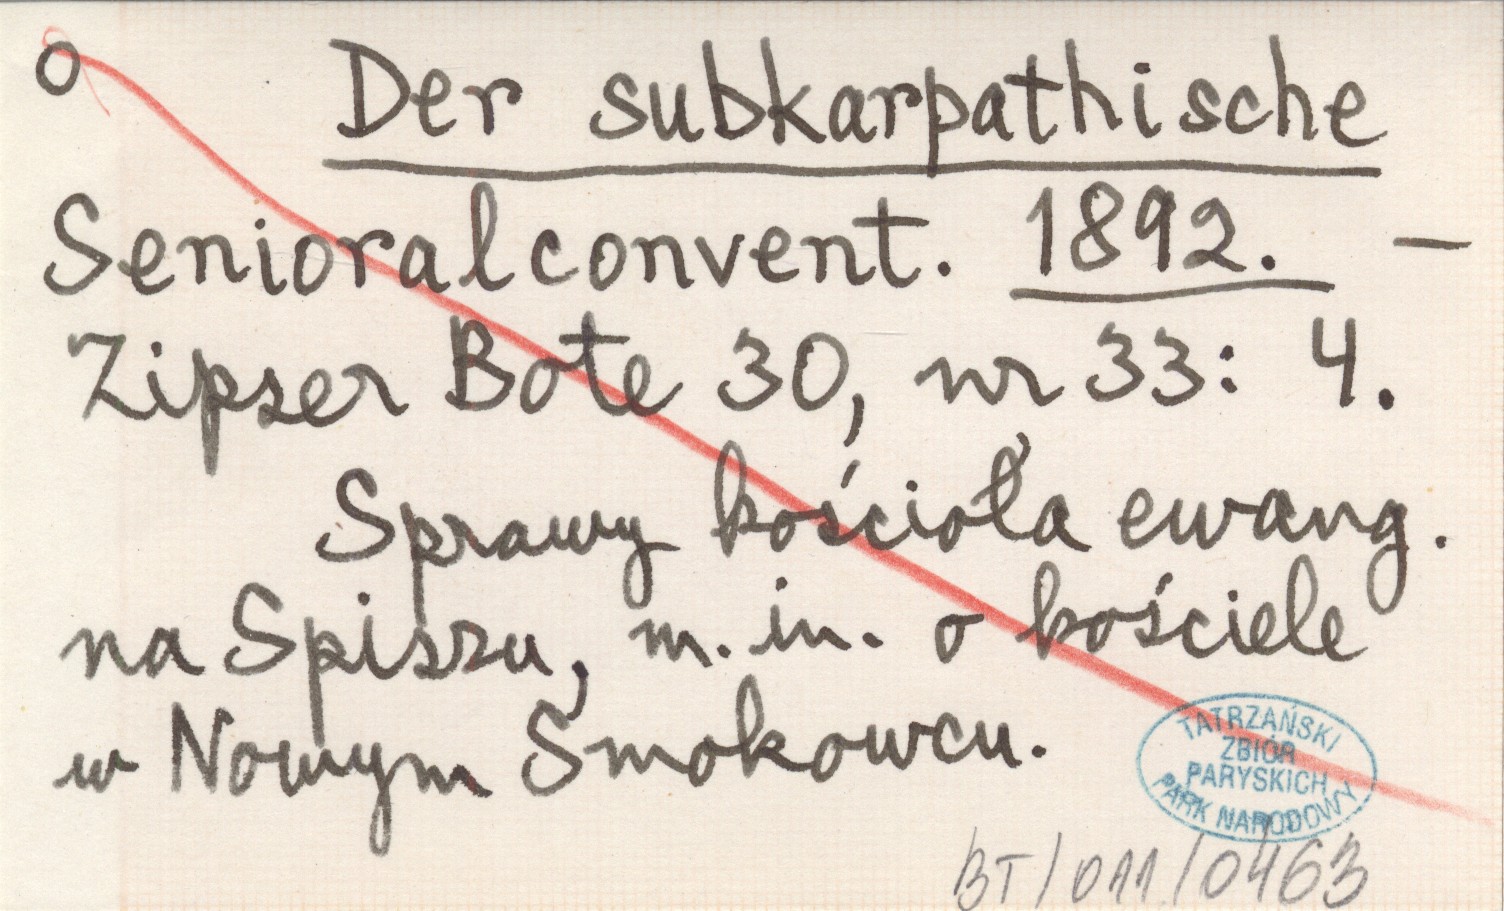 o Der subkarpathische
Senioralconvent. 1892. —
Zipser Bote 30, nr 33: 4.
Sprawy kościoła ewang.
na Spiszu, m. in. o kościele
w Nowym Smokowcu.
TATRZAŃSKI
ZBIÓR
PARYSKICH
PARK NARODOWY
BT/011/0463